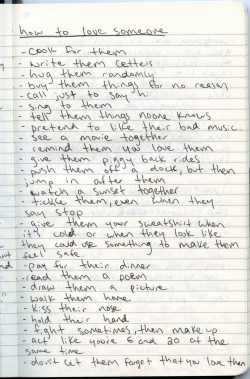 how to love someone
- cook for them
- write them letters
- hug them randomly
- buy them things for no reason
- call just to say hi
- sing to them
- tell them things noone knows
- pretend to like their bad music
- see a movie together
- remind them you love them
- give them piggy back rides
- push them off a dock, but then
jump in after them
- watch a sunset together
- tickle them, even when they
say stop
- give them your sweatshirt when
it's cold or when they look like
they could use something to make them
feel safe
- pay for their dinner
- read them a poem
- draw them a picture
- walk them home
- kiss their nose
- hold their hand
- fight sometimes, then make up
- act like you're 6 and 20 at the
same time
- don't let them forget that you love them